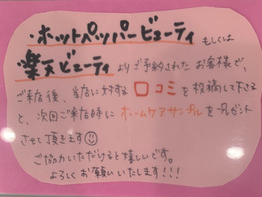 ・ホットペッパービューティ もしくは
楽天ビューティ よりご予約されたお客様で、
ご来店後、当店に対する 口コミ を投稿して下さる
と、次回ご来店時に ホームケアサンプル をプレゼント
させて頂きます☺
ご協力いただけると嬉しいです。
よろしくお願いいたします!!!